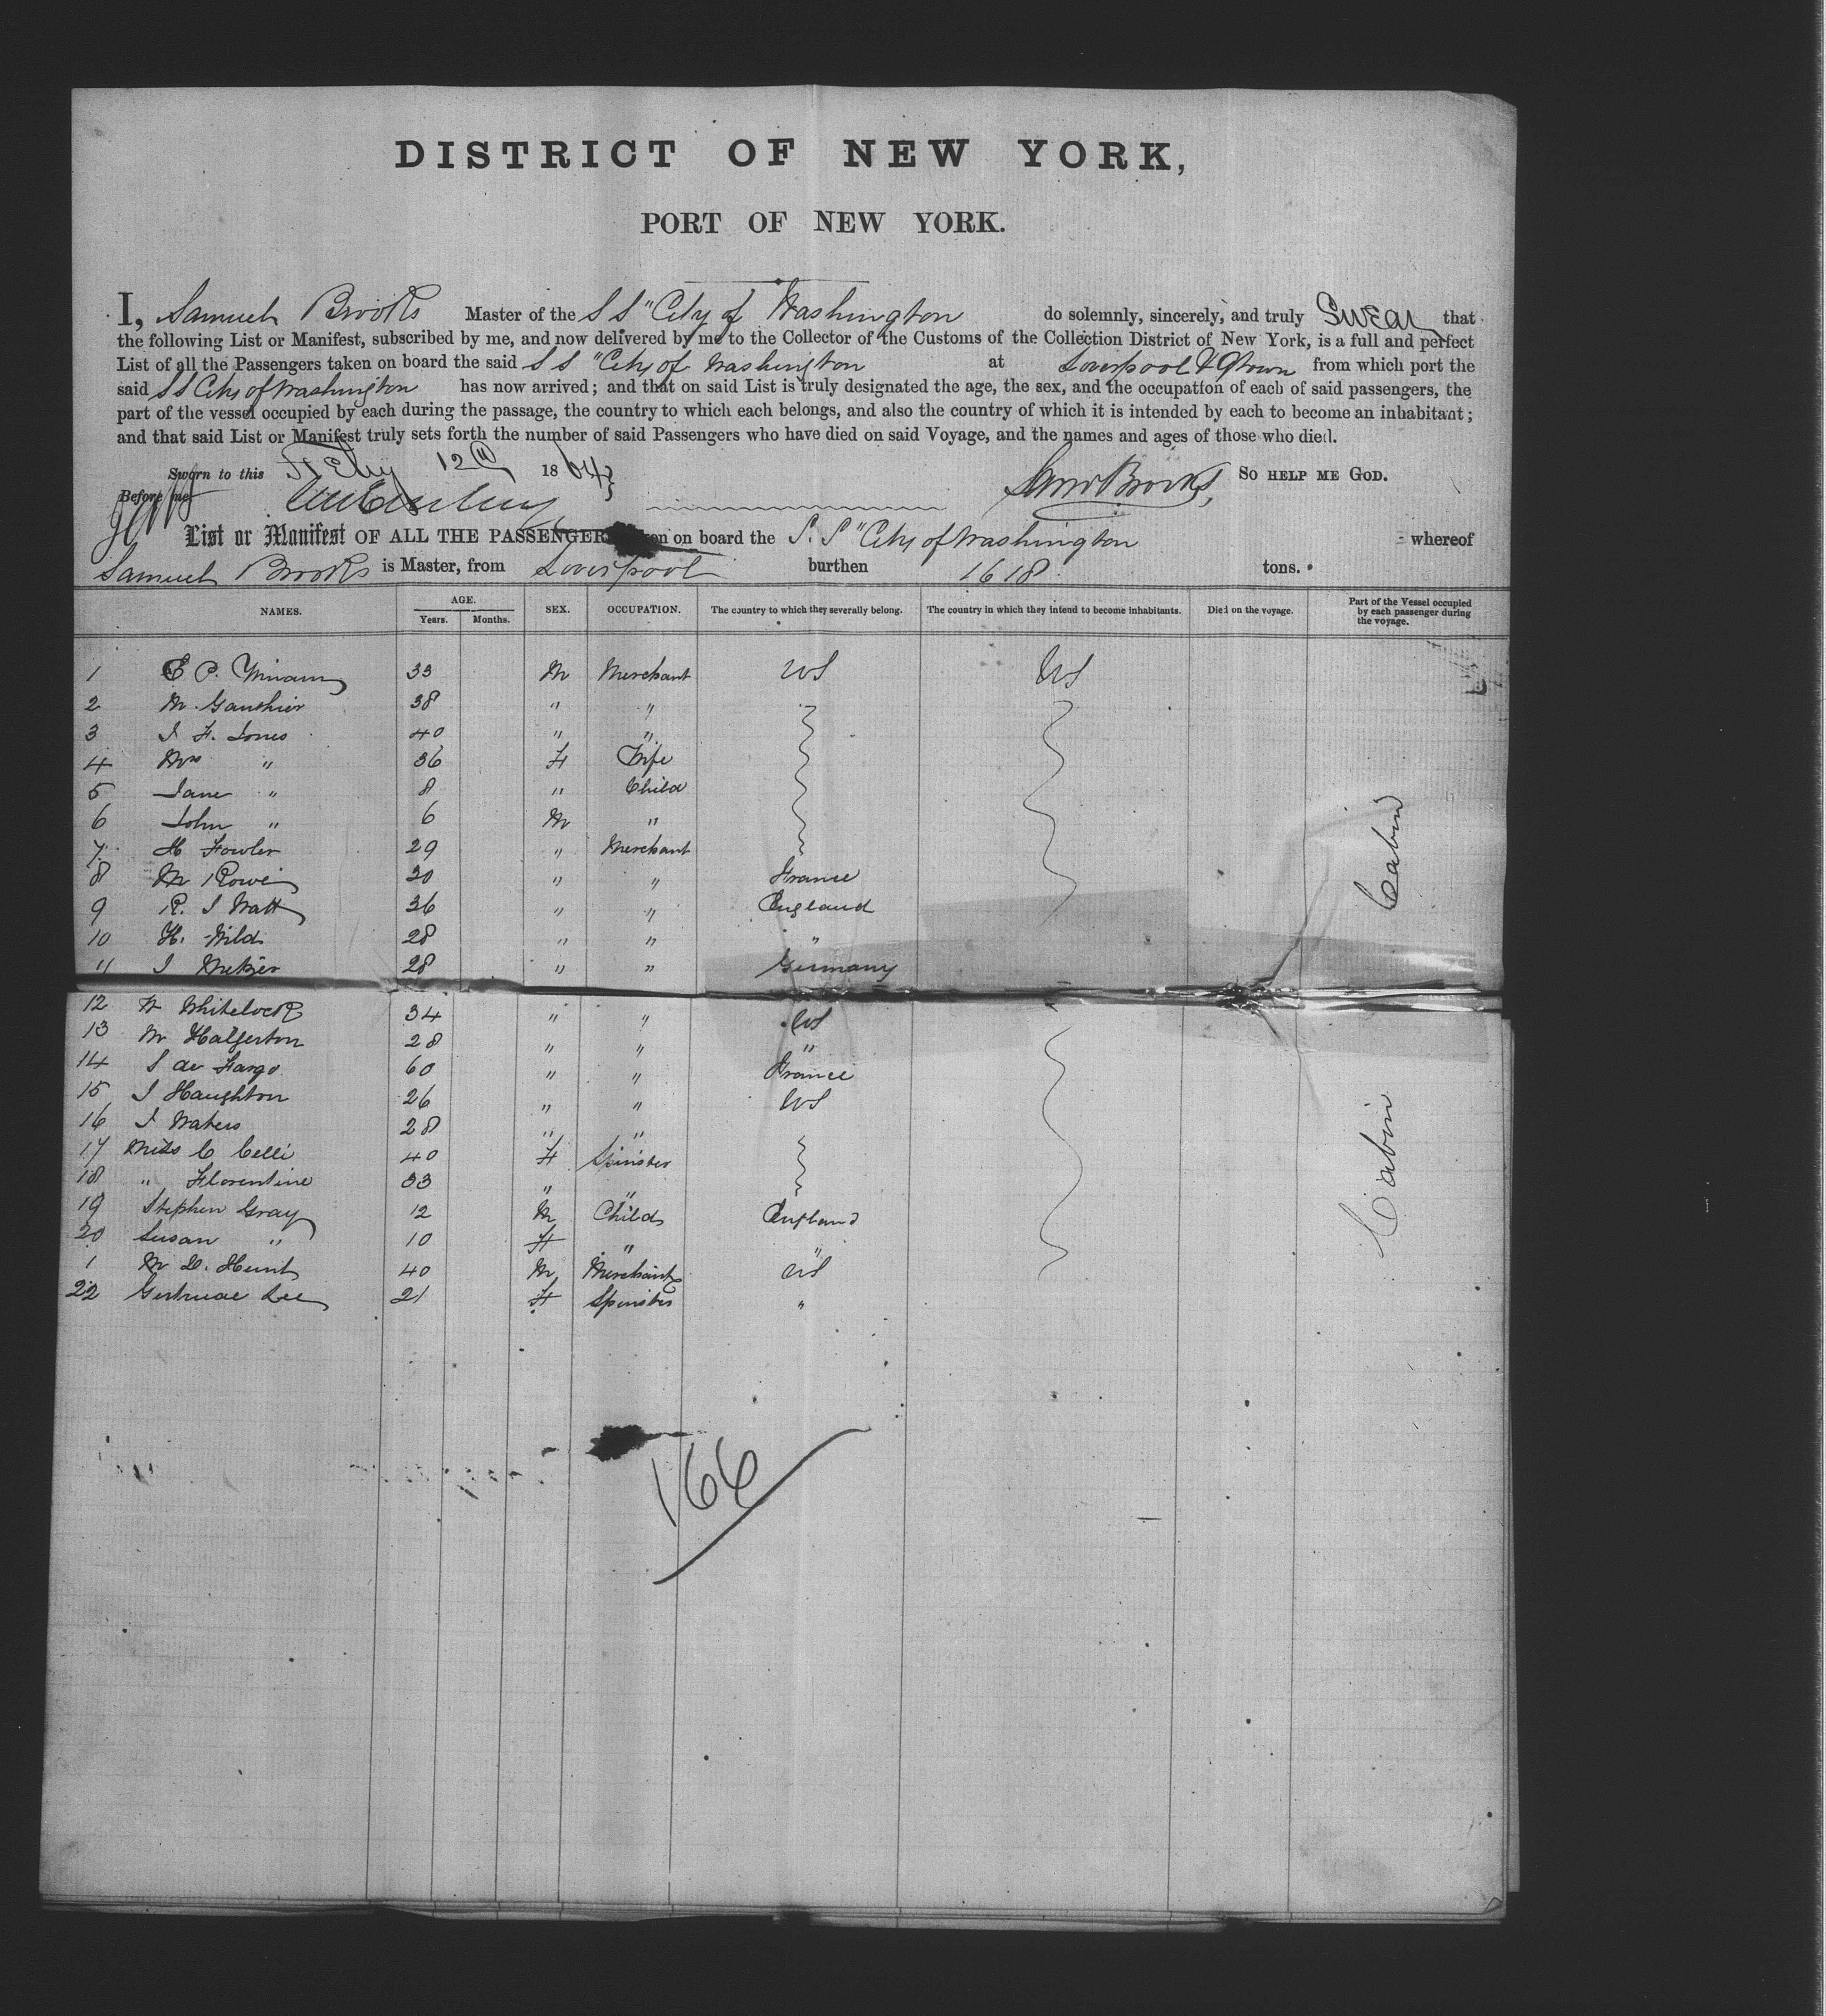 DISTRICT OF NEW YORK,
PORT OF NEW YORK.
I, Samuel Brooks Master of the S S "City of Washington do solemnly, sincerely, and truly Swear that
the following List or Manifest, subscribed by me, and now delivered by me to the Collector of the Customs of the Collection District of New York, is a full and perfect
List of all the Passengers taken on board the said S S "City of Washington at Liverpool & Qtown from which port the
said S S City of Washington has now arrived; and that on said List is truly designated the age, the sex, and the occupation of each of said passengers, the
part of the vessel occupied by each during the passage, the country to which each belongs, and also the country of which it is intended by each to become an inhabitant;
and that said List or Manifest truly sets forth the number of said Passengers who have died on said Voyage, and the names and ages of those who died.
Sworn to this Feby 12th 1864 Saml Brooks, SO HELP ME GOD.
Before me
List or Manifest OF ALL THE PASSENGERS taken on board the S. S "City of Washington whereof
Samuel Brooks is Master, from Liverpool burthen 1618 tons.
NAMES. AGE. Years. Months. SEX. OCCUPATION. The country to which they severally belong. The country in which they intend to become inhabitants. Died on the voyage. Part of the Vessel occupied by each passenger during the voyage.
1 33 M Merchant US US
2 M. Gauthier 38 " "
3 J. H. Jones 40 " "
4 Mrs " 36 F Wife
5 Jane " 8 " Child
6 John " 6 M "
7 H Fowler 29 " Merchant
8 M Rowe 30 " " France
9 R. J Watt 36 " " England
10 H. Wild 28 " " "
11 J 28 " " Germany
12 W Whitelock 34 " " US
13 M Halferton 28 " " "
14 S de Fargo 60 " " France
15 J Haughton 26 " " US
16 J Waters 28 " "
17 Miss C Celli 40 F Spinster
18 " Florentine 33 " "
19 Stephen Gray 12 M Child England
20 Susan " 10 F " "
1 M D. Hunt 40 M Merchant US
22 Gertrude Lee 21 F Spinster "
Cabin
Cabin
166